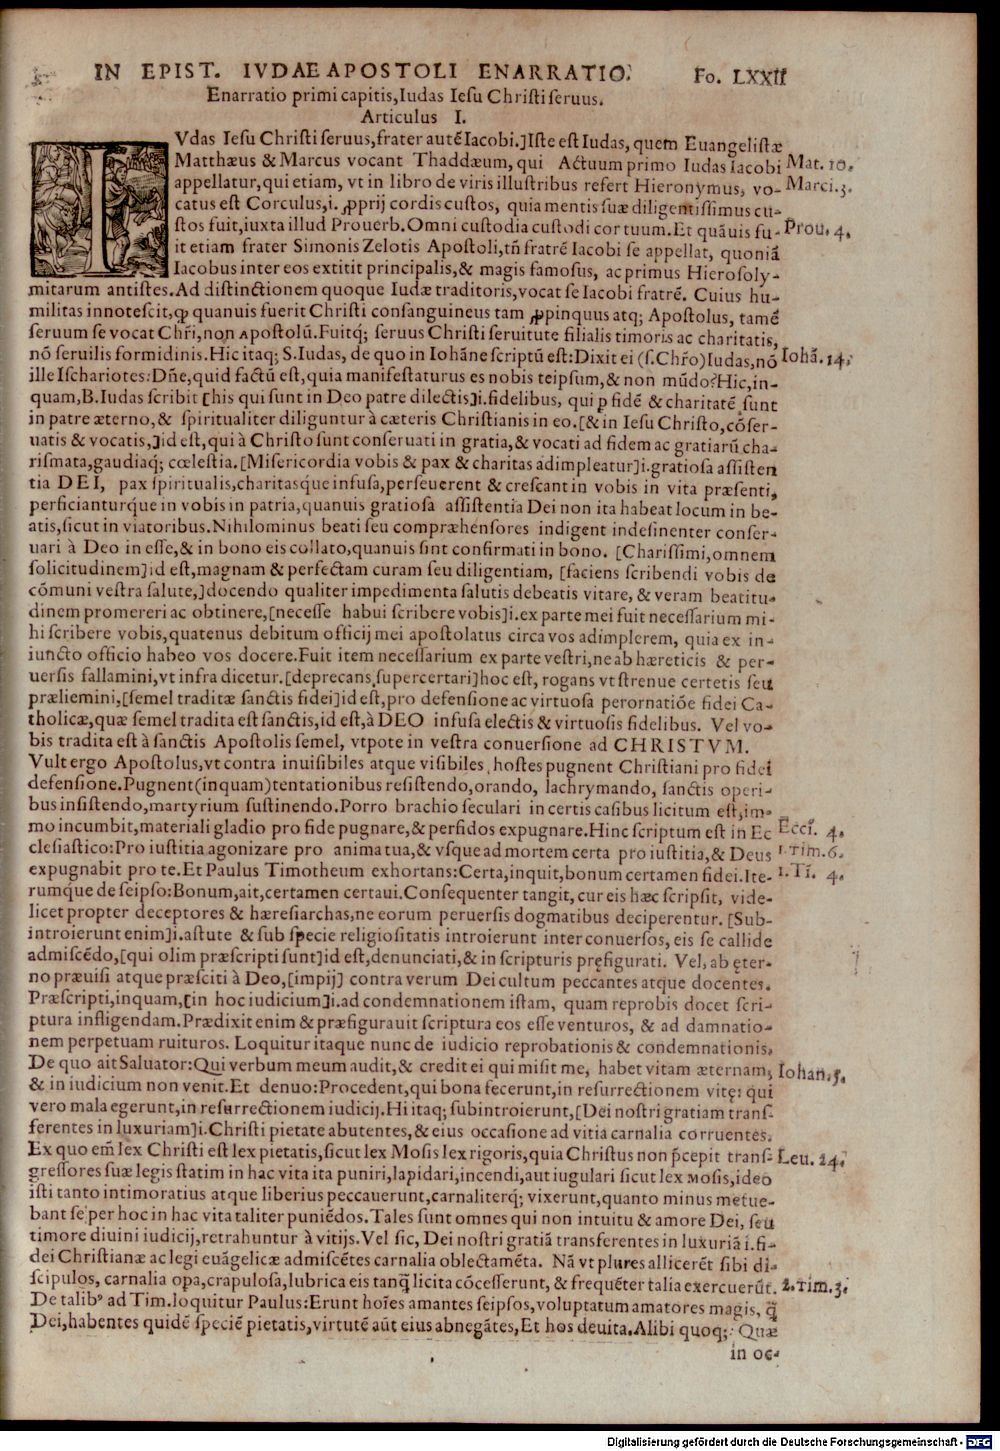 IN EPIST. IVDAE APOSTOLI ENARRATIO. Fo. LXXII
Enarratio primi capitis, Iudas Iesu Christi seruus.
Articulus I.
IVdas Iesu Christi seruus, frater autē Iacobi.] Iste est Iudas, quem Euangelistæ
Matthæus & Marcus vocant Thaddæum, qui Actuum primo Iudas Iacobi Mat. 10.
appellatur, qui etiam, vt in libro de viris illustribus refert Hieronymus, vo- Marci. 3.
catus est Corculus, i. ꝓprij cordis custos, quia mentis suæ diligentissimus cu-
stos fuit, iuxta illud Prouerb. Omni custodia custodi cor tuum. Et quāuis fu- Prou. 4.
it etiam frater Simonis Zelotis Apostoli, tñ fratrē Iacobi se appellat, quoniā
Iacobus inter eos extitit principalis, & magis famosus, ac primus Hierosoly-
mitarum antistes. Ad distinctionem quoque Iudæ traditoris, vocat se Iacobi fratrē. Cuius hu-
militas innotescit, ꝙ quanuis fuerit Christi consanguineus tam ꝓpinquus atq; Apostolus, tamē
seruum se vocat Chr̃i, non Apostolū. Fuitq; seruus Christi seruitute filialis timoris ac charitatis,
nō seruilis formidinis. Hic itaq; S. Iudas, de quo in Iohāne scriptū est: Dixit ei (s. Chr̃o) Iudas, nō Iohā. 14.
ille Ischariotes: Dñe, quid factū est, quia manifestaturus es nobis teipsum, & non mūdo? Hic, in-
quam, B. Iudas scribit [his qui sunt in Deo patre dilectis] i. fidelibus, qui ꝑ fidē & charitatē sunt
in patre æterno, & spiritualiter diliguntur à cæteris Christianis in eo. [& in Iesu Christo, cōser-
uatis & vocatis,] id est, qui à Christo sunt conseruati in gratia, & vocati ad fidem ac gratiarū cha-
rismata, gaudiaq; cœlestia. [Misericordia vobis & pax & charitas adimpleatur] i. gratiosa assisten
tia DEI, pax spiritualis, charitasque infusa, perseuerent & crescant in vobis in vita præsenti,
perficianturque in vobis in patria, quanuis gratiosa assistentia Dei non ita habeat locum in be-
atis, sicut in viatoribus. Nihilominus beati seu compræhensores indigent indesinenter conser-
uari à Deo in esse, & in bono eis collato, quanuis sint confirmati in bono. [Charissimi, omnem
solicitudinem] id est, magnam & perfectam curam seu diligentiam, [faciens scribendi vobis de
cōmuni vestra salute,] docendo qualiter impedimenta salutis debeatis vitare, & veram beatitu-
dinem promereri ac obtinere, [necesse habui scribere vobis] i. ex parte mei fuit necessarium mi-
hi scribere vobis, quatenus debitum officij mei apostolatus circa vos adimplerem, quia ex in-
iuncto officio habeo vos docere. Fuit item necessarium ex parte vestri, ne ab hæreticis & per-
uersis fallamini, vt infra dicetur. [deprecans supercertari] hoc est, rogans vt strenue certetis seu
præliemini, [semel traditæ sanctis fidei] id est, pro defensione ac virtuosa perornatiōe fidei Ca-
tholicæ, quæ semel tradita est sanctis, id est, à DEO infusa electis & virtuosis fidelibus. Vel vo-
bis tradita est à sanctis Apostolis semel, vtpote in vestra conuersione ad CHRISTVM.
Vult ergo Apostolus, vt contra inuisibiles atque visibiles hostes pugnent Christiani pro fidei
defensione. Pugnent (inquam) tentationibus resistendo, orando, lachrymando, sanctis operi-
bus insistendo, martyrium sustinendo. Porro brachio seculari in certis casibus licitum est, im-
mo incumbit, materiali gladio pro fide pugnare, & perfidos expugnare. Hinc scriptum est in Ec Eccī. 4.
clesiastico: Pro iustitia agonizare pro anima tua, & vsque ad mortem certa pro iustitia, & Deus 1. Tim. 6.
expugnabit pro te. Et Paulus Timotheum exhortans: Certa, inquit, bonum certamen fidei. Ite- 1. Tī. 4.
rumque de seipso: Bonum, ait, certamen certaui. Consequenter tangit, cur eis hæc scripsit, vide-
licet propter deceptores & hæresiarchas, ne eorum peruersis dogmatibus deciperentur. [Sub-
introierunt enim] i. astute & sub specie religiositatis introierunt inter conuersos, eis se callide
admiscēdo, [qui olim præscripti sunt] id est, denunciati, & in scripturis pręfigurati. Vel, ab ęter-
no præuisi atque præsciti à Deo, [impij] contra verum Dei cultum peccantes atque docentes.
Præscripti, inquam, [in hoc iudicium] i. ad condemnationem istam, quam reprobis docet scri-
ptura infligendam. Prædixit enim & præfigurauit scriptura eos esse venturos, & ad damnatio-
nem perpetuam ruituros. Loquitur itaque nunc de iudicio reprobationis & condemnationis.
De quo ait Saluator: Qui verbum meum audit, & credit ei qui misit me, habet vitam æternam, Iohan. 5.
& in iudicium non venit. Et denuo: Procedent, qui bona fecerunt, in resurrectionem vitę: qui
vero mala egerunt, in resurrectionem iudicij. Hi itaq; subintroierunt, [Dei nostri gratiam trans-
ferentes in luxuriam] i. Christi pietate abutentes, & eius occasione ad vitia carnalia corruentes.
Ex quo em̃ lex Christi est lex pietatis, sicut lex Mosis lex rigoris, quia Christus non p̄cepit trans- Leu. 24.
gressores suæ legis statim in hac vita ita puniri, lapidari, incendi, aut iugulari sicut lex Mosis, ideo
isti tanto intimoratius atque liberius peccauerunt, carnaliterq; vixerunt, quanto minus metue-
bant se per hoc in hac vita taliter puniēdos. Tales sunt omnes qui non intuitu & amore Dei, seu
timore diuini iudicij, retrahuntur à vitijs. Vel sic, Dei nostri gratiā transferentes in luxuriā i. fi-
dei Christianæ ac legi euāgelicæ admiscētes carnalia oblectamēta. Nā vt plures allicerēt sibi di-
scipulos, carnalia oꝑa, crapulosa, lubrica eis tanq̃ licita cōcesserunt, & frequēter talia exercuerūt. 2. Tim. 3.
De talibꝰ ad Tim. loquitur Paulus: Erunt hoīes amantes seipsos, voluptatum amatores magis, q̃
Dei, habentes quidē speciē pietatis, virtutē aūt eius abnegātes, Et hos deuita. Alibi quoq;: Quæ
in oc-
Digitalisierung gefördert durch die Deutsche Forschungsgemeinschaft - DFG